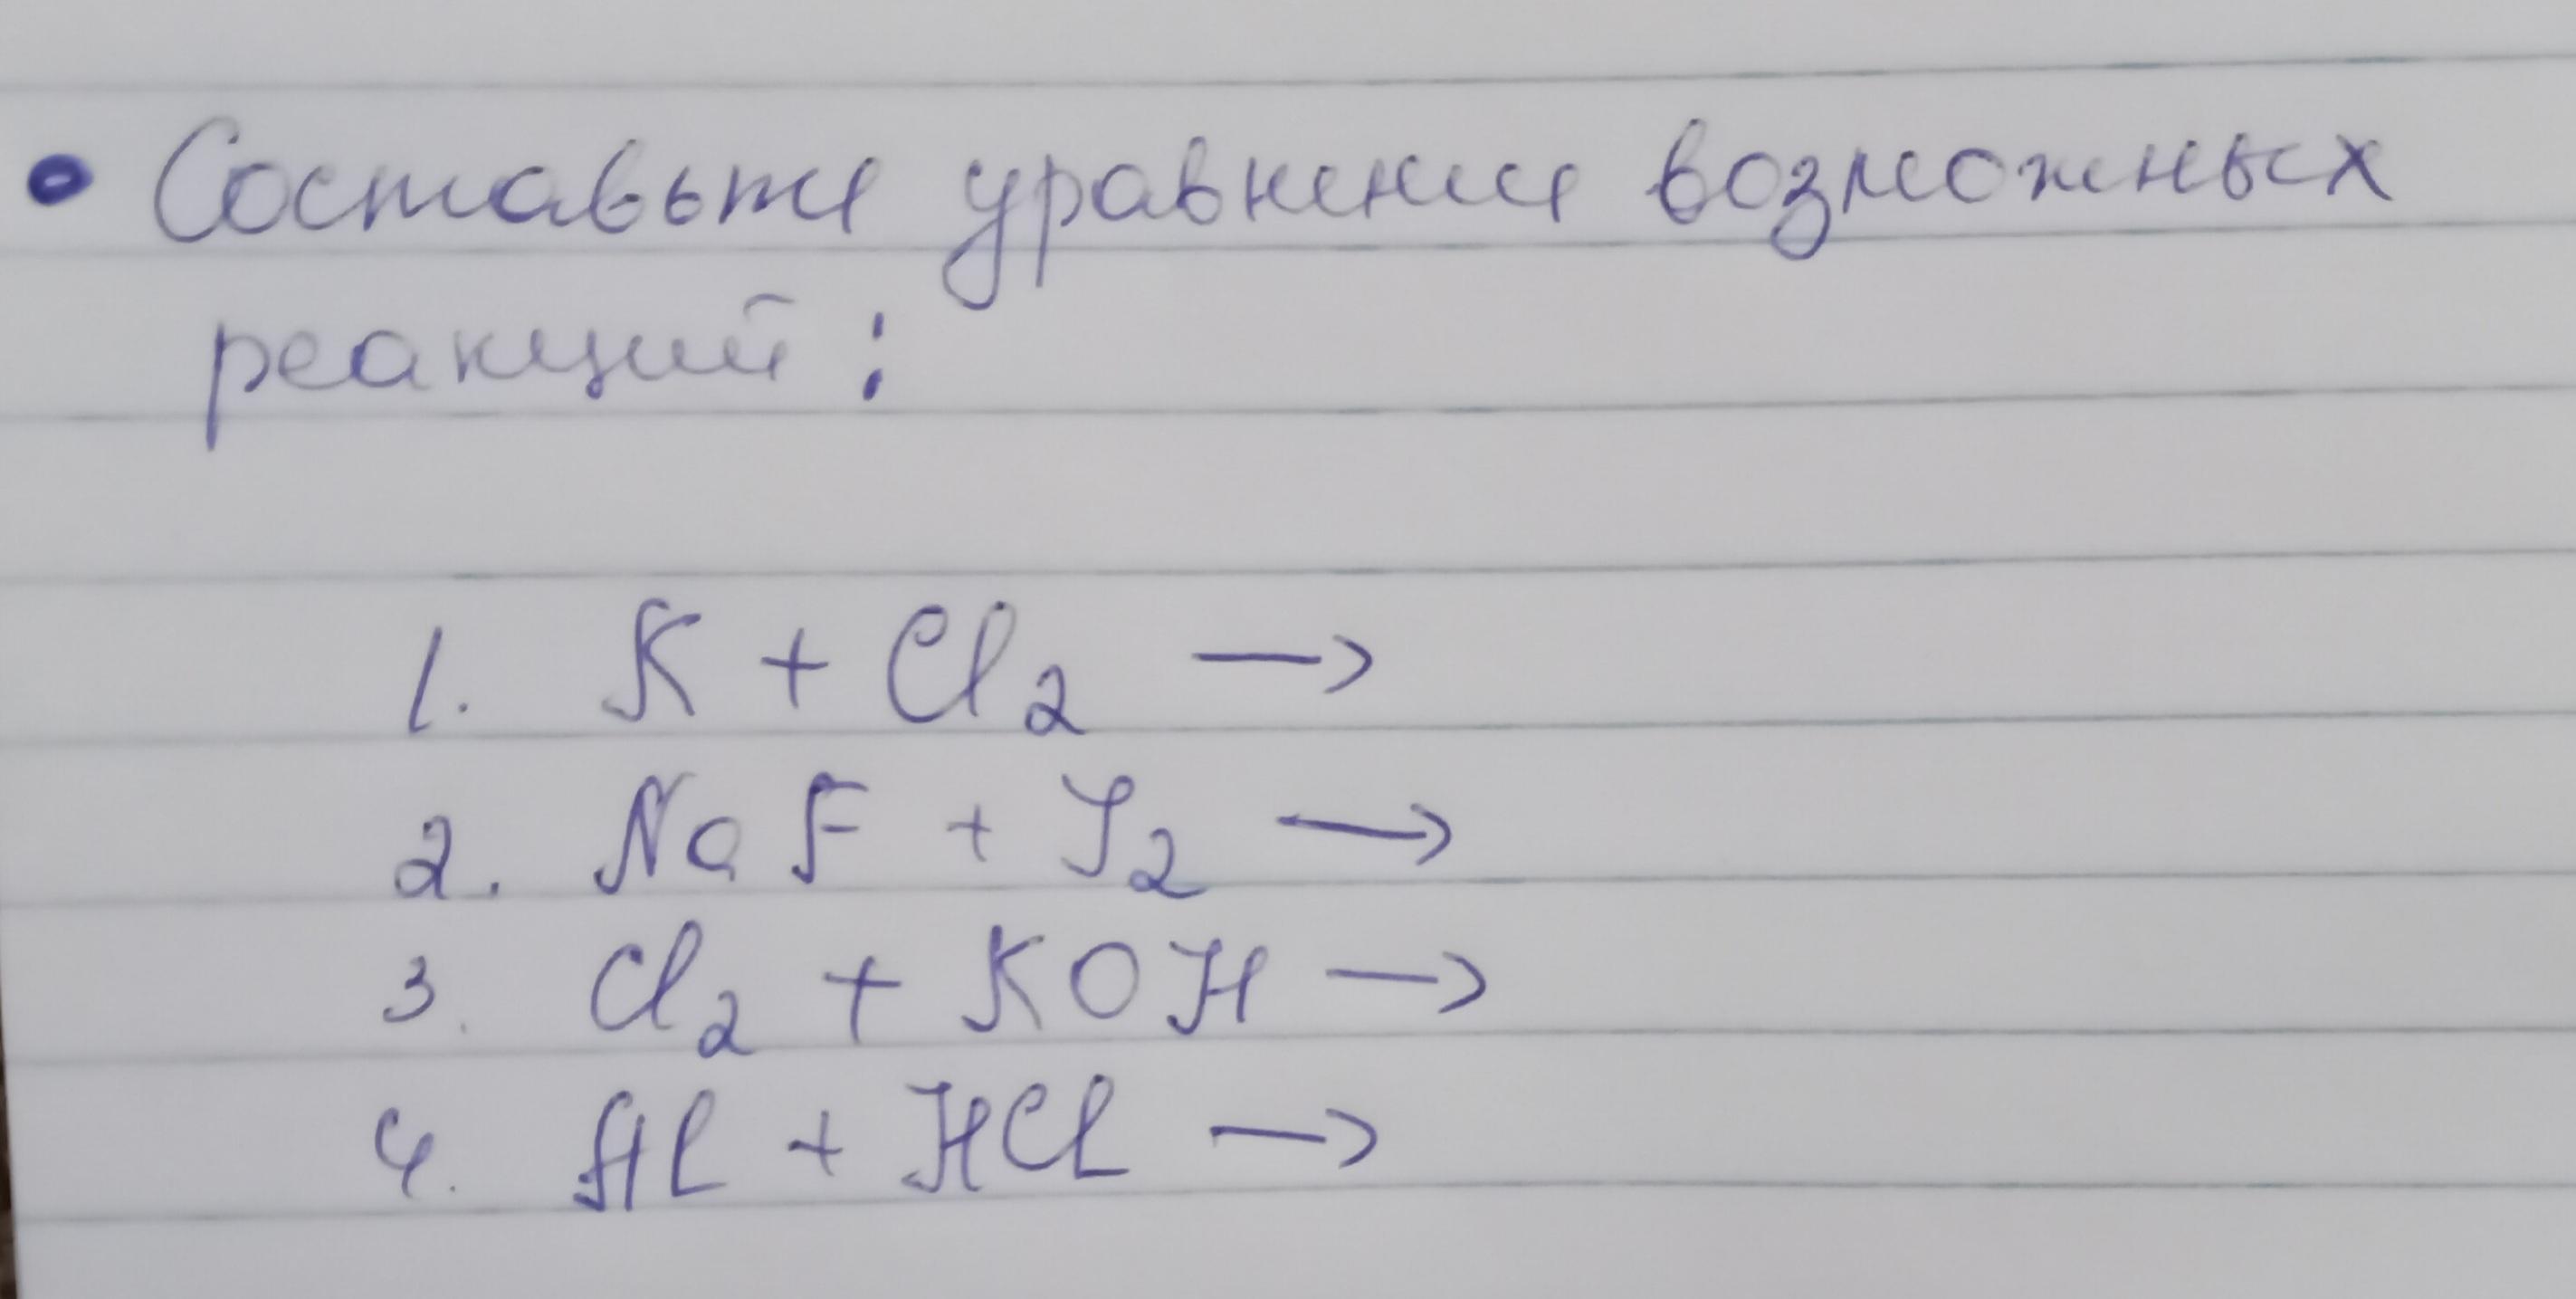 • Составьте уравнения возможных
реакций:
1. K + Cl₂ →
2. NaF + J₂ →
3. Cl₂ + KOH →
4. Al + HCl →